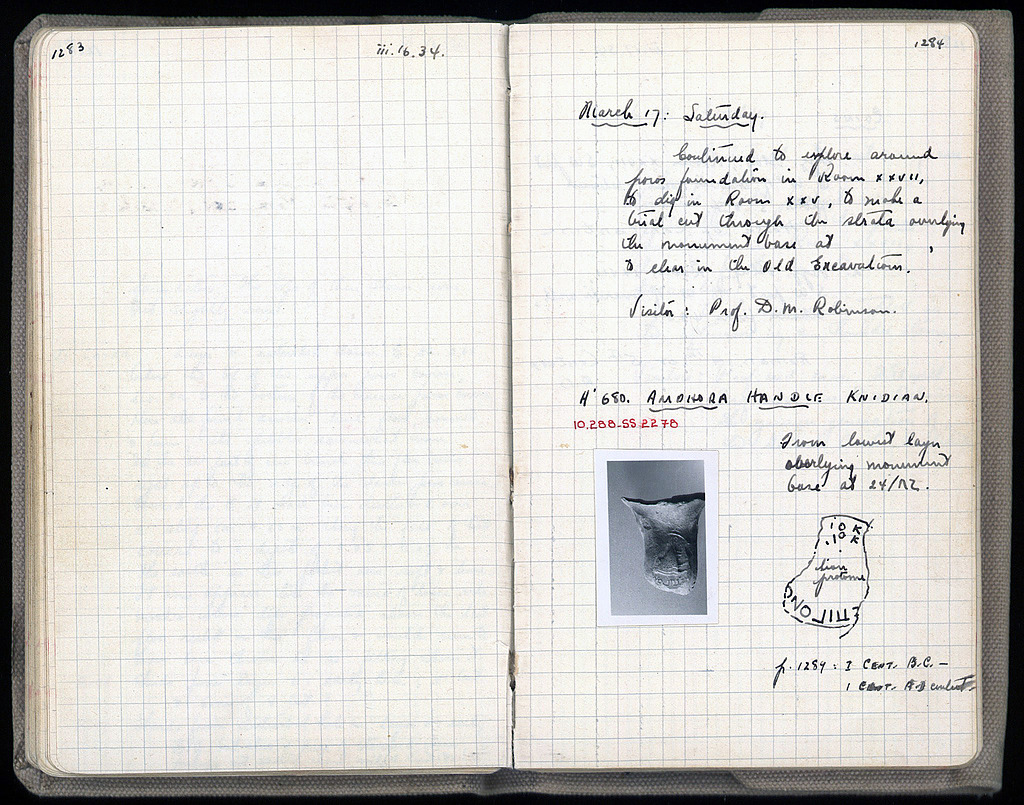 1283
iii.16.34.
1284
March 17: Saturday.
Continued to explore around
poros foundation in Room XXVII,
to dig in Room XXV, to make a
trial cut through the strata overlying
the monument base at ,
to clear in the Old Excavations.
Visitor: Prof. D. M. Robinson.
H' 680. AMPHORA HANDLE KNIDIAN.
10.288-SS 2278
From lowest layer
overlying monument
base at 24/
lion
protome
p. 1284: I CENT. B.C. –
1 CENT. A D context